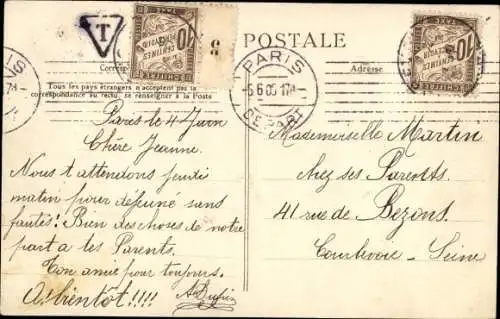 T
POSTALE
Corres
Adresse
Tous les pays étrangers n'acceptent pas la
correspondance au recto, se renseigner à la Poste
PARIS
DEPART
10
CENTIMES
A PERCEVOIR
10
CENTIMES
A PERCEVOIR
Paris le 4 Juin
Chère Jeanne.
Nous t'attendons jeudi
matin pour déjeuné sans
fautes! Bien des choses de notre
part a tes Parents.
Ton amie pour toujours.
A bientôt!!!!
Mademoiselle Martin
chez ses Parents.
41 rue de Bezons.
Courbevoie - Seine